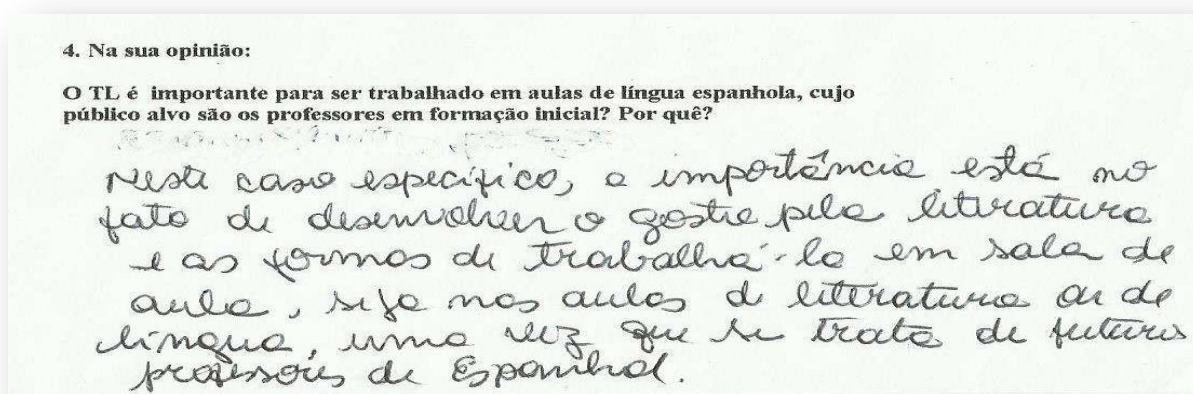 4. Na sua opinião:
O TL é importante para ser trabalhado em aulas de língua espanhola, cujo
público alvo são os professores em formação inicial? Por quê?
Neste caso específico, a importância está no
fato de desenvolver o gosto pela literatura
e as formas de trabalhá-la em sala de
aula, seja nas aulas de literatura ou de
língua, uma vez que se trata de futuros
professores de Espanhol.